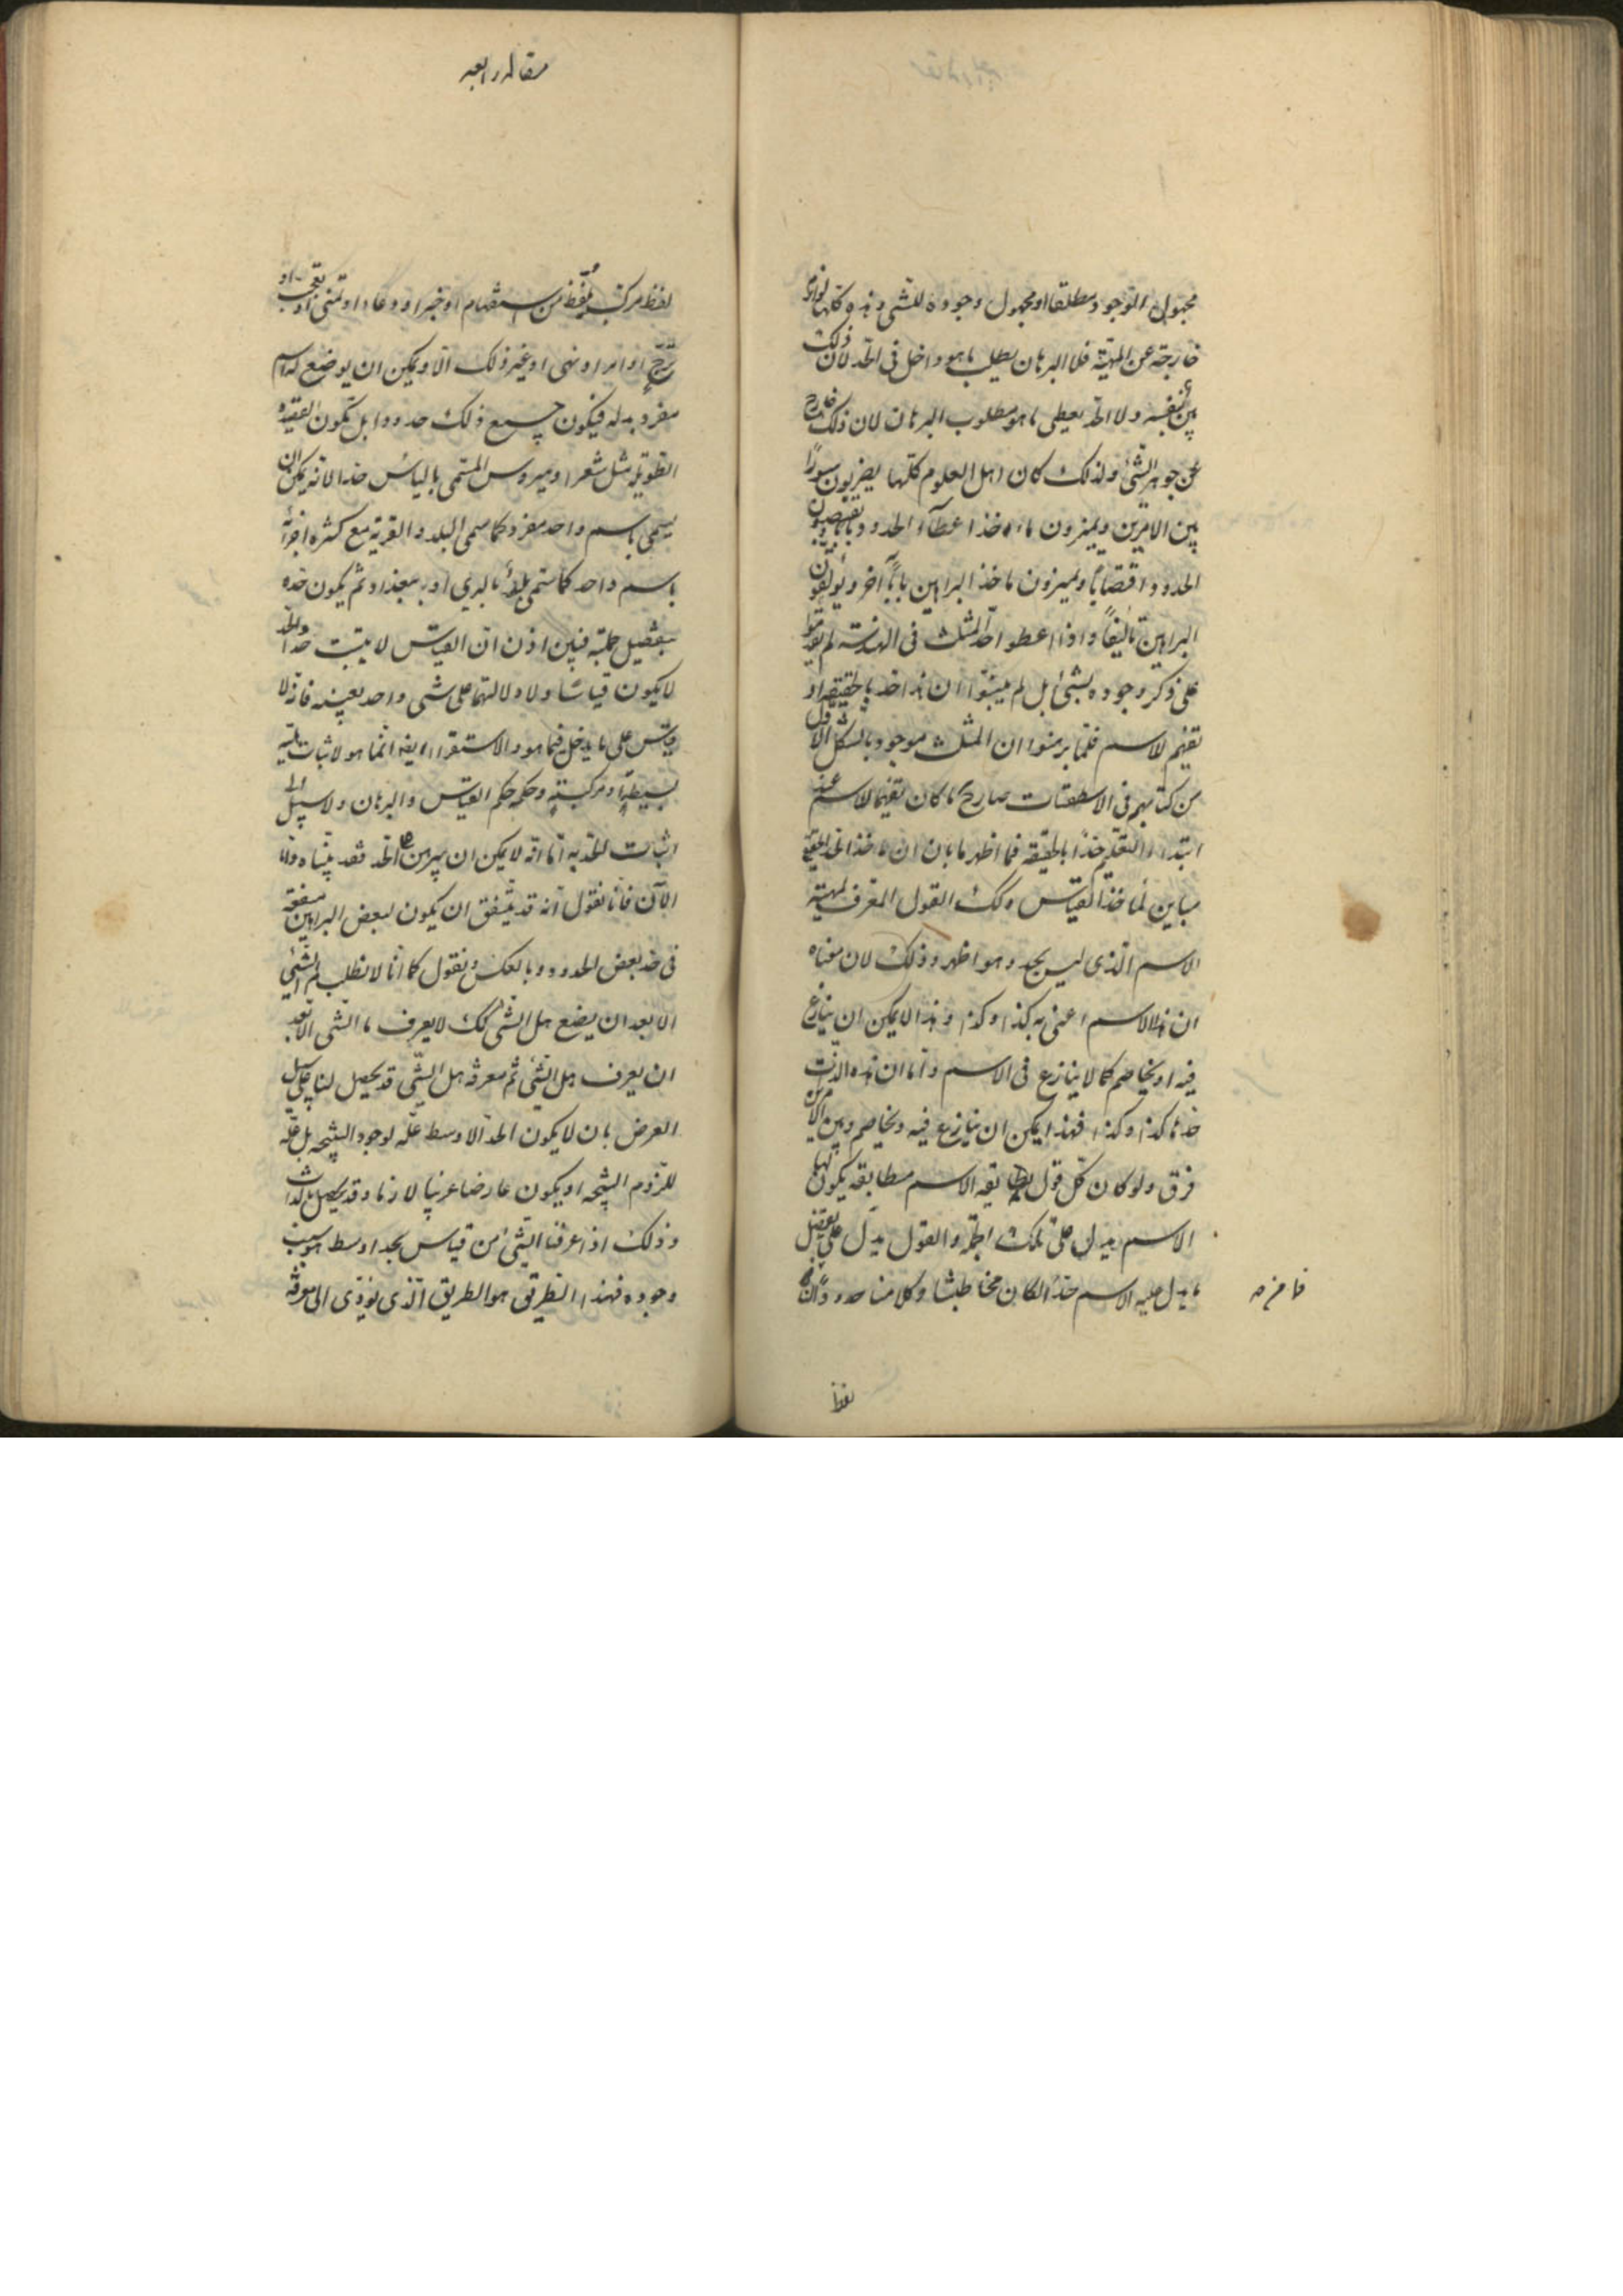 مجهول الوجود مطلقا او مجهول وجوده للشئ وهذه كلها لوازم
خارجة عن المهية فلا البرهان يطلب ما هو داخل فى الحد لان ذلك
بين بنفسه ولا الحد يعطى ما هو مطلوب البرهان لان ذلك خارج
عن جوهر الشئ ولذلك كان اهل العلوم كلها يضربون سورًا
بين الامرين ويميزون مأخذ اعطاء الحدود بابا ويقتضبون
الحدود اقتضابًا ويميزون مأخذ البراهين بابًا آخر ويؤلفون
البراهين تأليفًا واذا اعطوا حد المثلث فى الهندسة لم يعرّجوا
على ذكر وجوده لشئ بل لم يبينوا ان هذا حد بالحقيقة او
تفهيم للاسم فلما برهنوا ان المثلث موجود بالشكل الاول
من كتابهم فى الاسطقسات صار ح ما كان تفهيما للاسم عند
ابتداء التعليم حدًا بالحقيقة فما اظهر ما بان ان مأخذ الحد الحقيقى
مباين لمأخذ القياس وكك القول المعرف لمهية
الاسم الذى ليس بحد وهو اظهر وذلك لان معناه
ان هذا الاسم اعنى به كذا وكذا وهذا لا يمكن ان ينازع
فيه او يخاصم كما لا ينازع فى الاسم واما ان هذه الذات
حدها كذا وكذا فهذا يمكن ان ينازع فيه ويخاصم وبين الامرين
فرق ولو كان كل قول يطابقه الاسم مطابقة يكون لها
الاسم يدل على تلك الجملة والقول يدل على تفصيل
ما يدل عليه الاسم حدًا لكان مخاطبتنا وكلامنا حدودًا فانه
فا من ه
لفظ
مقاله رابعه
لفظ مركب يلفظ من استفهام او خبر او دعاء او تمنى او تعجب او
ترجّ او امر او نهى او غير ذلك الا ويمكن ان يوضع له اسم
مفرد بدله فيكون جميع ذلك حدودا بل تكون القصيدة
الطويلة مثل شعر اوميروس المسمى بالياس حدا لانه يمكن ان
يسمى باسم واحد مفرد كما سمى البلد والقرية مع كثرة اجزائه
باسم واحد كما سمى بلد بالرى او ببغداد ثم يكون حده
بتفصيل جملته فبين اذن ان القياس لا يثبت حدا والحد
لا يكون قياسًا ولا دلالتهما على شئ واحد بعينه فانه لا
قياس على ما يدخل فيما هو والاستقراء ايضا انما هو لاثبات هلية
بسيطة او مركبة وحكمه حكم القياس والبرهان ولا سبيل الى
اثبات الحد به اما انه لا يمكن ان يبرهن على الحد فقد بيناه واما
الآن فانا نقول انه قد يتفق ان يكون لبعض البراهين منفعة
فى حد بعض الحدود وبالعكس ونقول كما انا لا نطلب لم الشئ
الا بعد ان يضع هل الشئ كك لا يعرف ما الشئ الا بعد
ان يعرف هل الشئ ثم معرفة هل الشئ قد يحصل لنا على سبيل
العرض بان لا يكون الحد الاوسط علة لوجود النتيجة بل علة
للزوم النتيجة او يكون عارضا غريبا لازما وقد يحصل بالذات
وذلك اذا عرفنا الشئ من قياس بحد اوسط هو سبب
وجوده فهذا الطريق هو الطريق الذى يؤدى الى معرفة